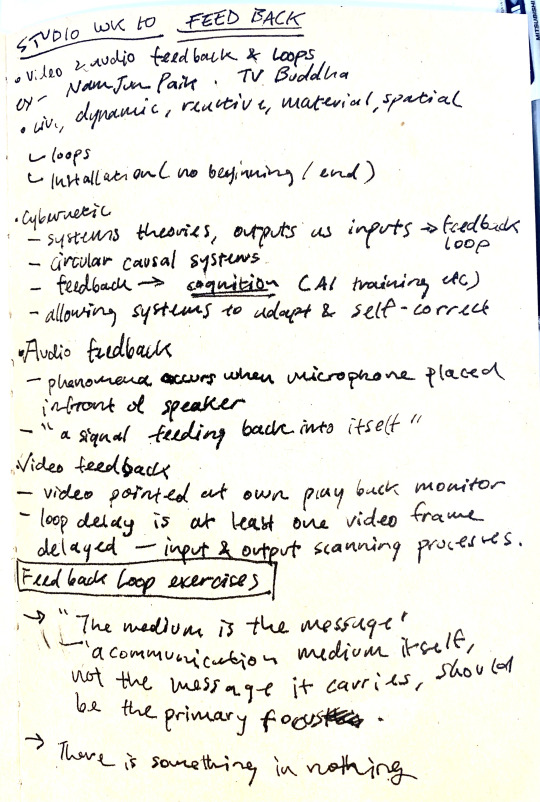 STUDIO WK 10 FEED BACK
• Video & audio feedback & loops
ex - Nam Jun Paik . TV Buddha
• Live, dynamic, reactive, material, spatial
↳ loops
↳ Installation (no beginning / end)
• Cybernetic
- systems theories, outputs as inputs → feedback
loop
- circular causal systems
- feedback → cognition (AI training etc)
- allowing systems to adapt & self-correct
• Audio feedback
- phenomena occurs when microphone placed
infront of speaker
- "a signal feeding back into itself"
Video feedback
- video pointed at own play back monitor
- loop delay is at least one video frame
delayed - input & output scanning processes.
Feedback Loop exercises
→ "The medium is the message"
- "a communication medium itself,
not the message it carries, should
be the primary focus.
→ There is something in nothing
MITSUBISHI